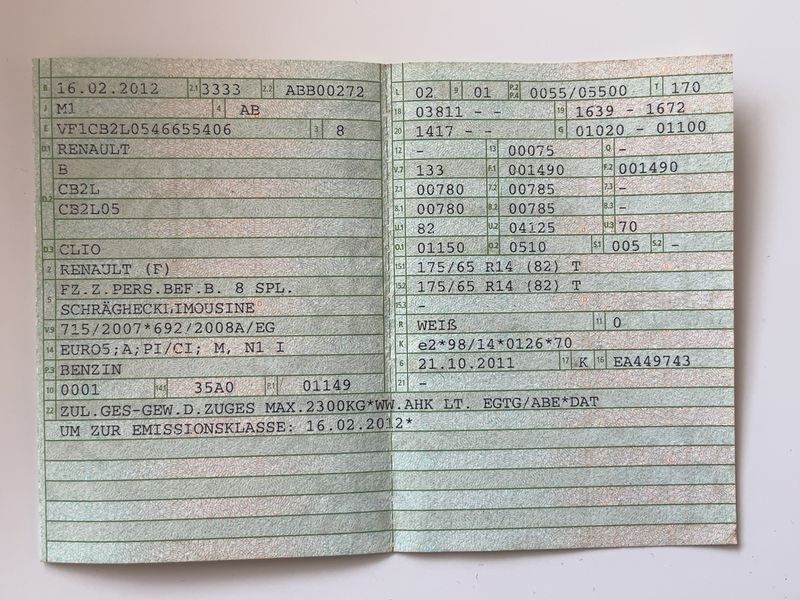 B 16.02.2012 2.1 3333 2.2 ABB00272
J M1 4 AB
E VF1CB2L0546655406 3 8
D.1 RENAULT
B
D.2 CB2L
CB2L05
D.3 CLIO
2 RENAULT (F)
5 FZ.Z.PERS.BEF.B. 8 SPL.
SCHRÄGHECKLIMOUSINE
V.9 715/2007*692/2008A/EG
14 EURO5;A;PI/CI; M, N1 I
P.3 BENZIN
10 0001 14.1 35A0 P.1 01149
L 02 9 01 P.2 P.4 0055/05500 T 170
18 03811 - - 19 1639 - 1672
20 1417 - - G 01020 - 01100
12 - 13 00075 Q -
V.7 133 F.1 001490 F.2 001490
7.1 00780 7.2 00785 7.3 -
8.1 00780 8.2 00785 8.3 -
U.1 82 U.2 04125 U.3 70
O.1 01150 O.2 0510 S.1 005 S.2 -
15.1 175/65 R14 (82) T
15.2 175/65 R14 (82) T
15.3 -
R WEIß 11 0
K e2*98/14*0126*70
6 21.10.2011 17 K 16 EA449743
21 -
22 ZUL.GES-GEW.D.ZUGES MAX.2300KG*WW.AHK LT. EGTG/ABE*DAT
UM ZUR EMISSIONSKLASSE: 16.02.2012*